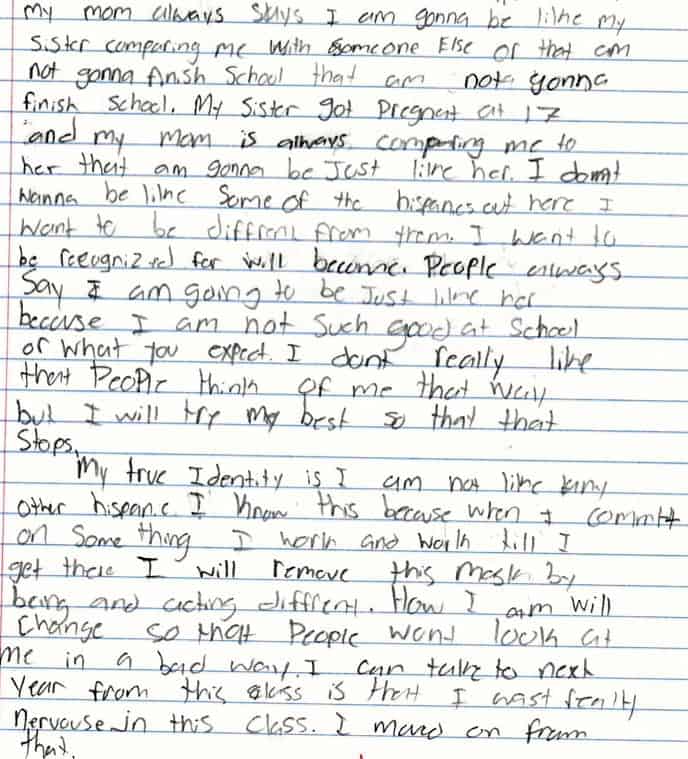 my mom always says I am gonna be like my
Sister comparing me with someone Else or that am
not gonna finish School that am not gonna
finish School. My Sister got Pregnat at 17
and my mom is always comparing me to
her that am gonna be Just like her. I dont
wanna be like Some of the hispanics out here I
want to be diffrent from them. I want to
be recognized for will become. People always
Say I am going to be Just like her
because I am not Such good at School
or what you expect. I dont really like
that People think of me that way
but I will try my best so that that
Stops.
My true Identity is I am not like any
other hispanic I know this because when I commit
on Something I work and work till I
get there I will remove this mask by
being and acting diffrent. How I am will
Change so that People wont look at
me in a bad way. I can take to next
Year from this class is that I wast really
nervouse in this class. I moved on from
that.